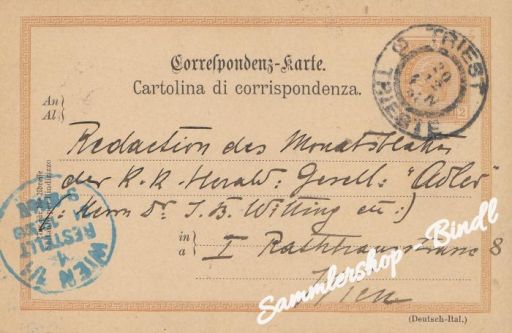 Correspondenz-Karte.
Cartolina di corrispondenza.
An
Al
TRIEST
TRIESTE
Redaction des Monatsblattes
der K. K. Herald: Gesell: "Adler"
(: Herrn Dr. J. B. Witting etc :)
in
a
I Rathhausstrasse 8
Wien
WIEN 1/1
BESTELLT
Sammlershop - Bindl
(Deutsch-Ital.)